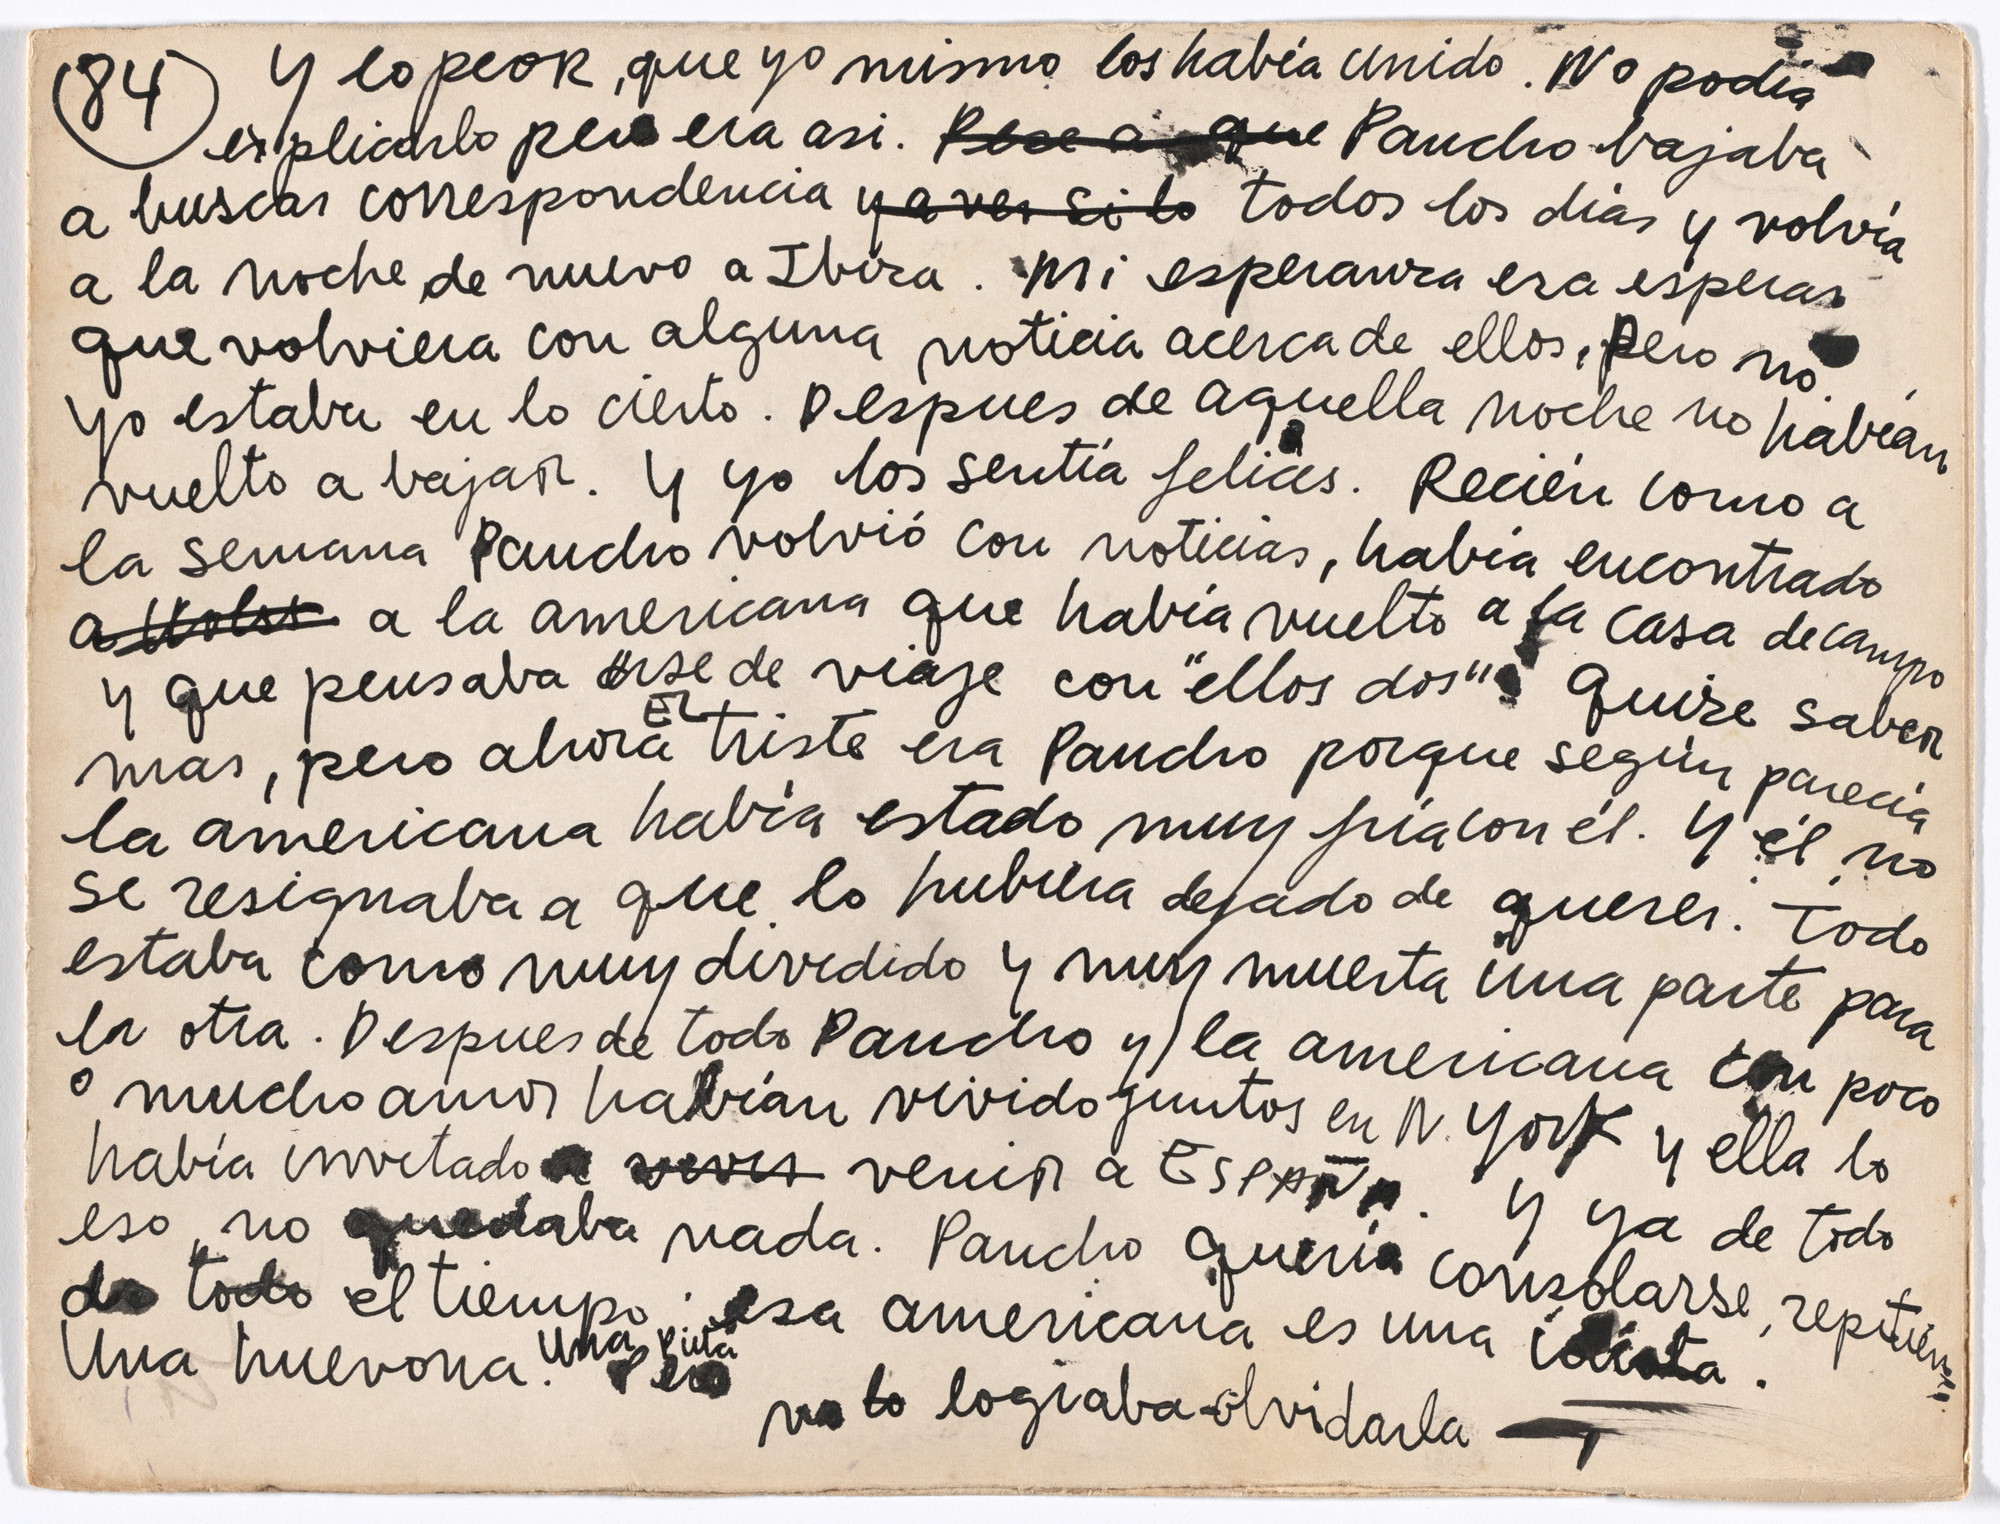 (84) Y lo peor, que yo mismo los había unido. No podía
explicarlo pero era asi. Pese a que Pancho bajaba
a buscar correspondencia y a ver si lo todos los días y volvía
a la noche de nuevo a Ibiza. Mi esperanza era esperar
que volviera con alguna noticia acerca de ellos, pero no.
Yo estaba en lo cierto. Despues de aquella noche no habían
vuelto a bajar. Y yo los sentía felices. Recién como a
la semana Pancho volvió con noticias, había encontrado
a a la americana que había vuelto a la casa de campo
y que pensaba irse de viaje con "ellos dos". Quise saber
mas, pero ahora EL triste era Pancho porque según parecía
la americana había estado muy fría con él. Y él no
se resignaba a que lo hubiera dejado de querer. Todo
estaba como muy dividido y muy muerta una parte para
la otra. Despues de todo Pancho y la americana con poco
o mucho amor habían vivido juntos en N. York y ella lo
había invitado a vivir venir a ESPAÑA. Y ya de todo
eso, no quedaba nada. Pancho quería consolarse, repitien-
do todo el tiempo: esa americana es una idiota.
Una huevona. Una puta
Pero no lo lograba olvidarla